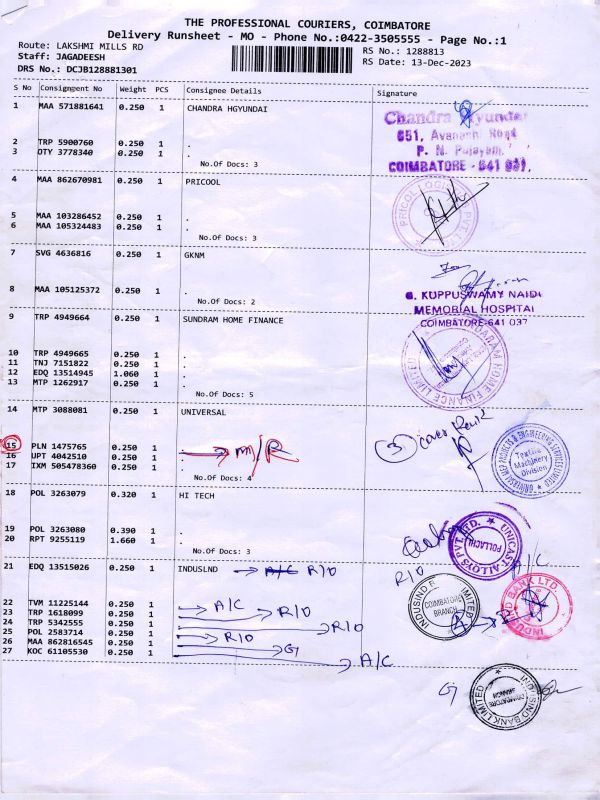 THE PROFESSIONAL COURIERS, COIMBATORE
Delivery Runsheet - MO - Phone No.:0422-3505555 - Page No.:1
Route: LAKSHMI MILLS RD
RS No.: 1288813
Staff: JAGADEESH
RS Date: 13-Dec-2023
DRS No.: DCJB128881301
S No Consignment No Weight PCS Consignee Details Signature
1 MAA 571881641 0.250 1 CHANDRA HGYUNDAI
2 TRP 5900760 0.250 1 .
3 OTY 3778340 0.250 1 .
No.Of Docs: 3
Chandra Hyundai
651, Avanashi Road
COIMBATORE - 641 037.
4 MAA 862670981 0.250 1 PRICOOL
5 MAA 103286452 0.250 1 .
6 MAA 105324483 0.250 1 .
No.Of Docs: 3
PRICOL LOGISTICS PVT. LTD
7 SVG 4636816 0.250 1 GKNM
8 MAA 105125372 0.250 1 .
No.Of Docs: 2
For
G. KUPPUSWAMY NAIDU
MEMORIAL HOSPITAL
COIMBATORE-641 037
9 TRP 4949664 0.250 1 SUNDRAM HOME FINANCE
10 TRP 4949665 0.250 1 .
11 TNJ 7151822 0.250 1 .
12 EDQ 13514945 1.060 1 .
13 MTP 1262917 0.250 1 .
No.Of Docs: 5
SUNDARAM HOME FINANCE LIMITED
14 MTP 3088081 0.250 1 UNIVERSAL
15 PLN 1475765 0.250 1 . M/R
16 UPT 4042510 0.250 1 .
17 IXM 505478360 0.250 1 .
No.Of Docs: 4
3
Textile
Machinery
Division
18 POL 3263079 0.320 1 HI TECH
19 POL 3263080 0.390 1 .
20 RPT 9255119 1.660 1 .
No.Of Docs: 3
UNICAST ALLOYS PVT. LTD.
POLLACHI
21 EDQ 13515026 0.250 1 INDUSLND A/C R/O
A/C
R/O
22 TVM 11225144 0.250 1 . A/C
23 TRP 1618099 0.250 1 . R/O
24 TRP 5342555 0.250 1 . R/O
25 POL 2583714 0.250 1 . R/O
26 MAA 862816545 0.250 1 . G
27 KOC 61105530 0.250 1 . A/C
COIMBATORE
BRANCH
INDUSIND BANK LTD.
G
INDUSIND BANK LIMITED
COIMBATORE
BRANCH